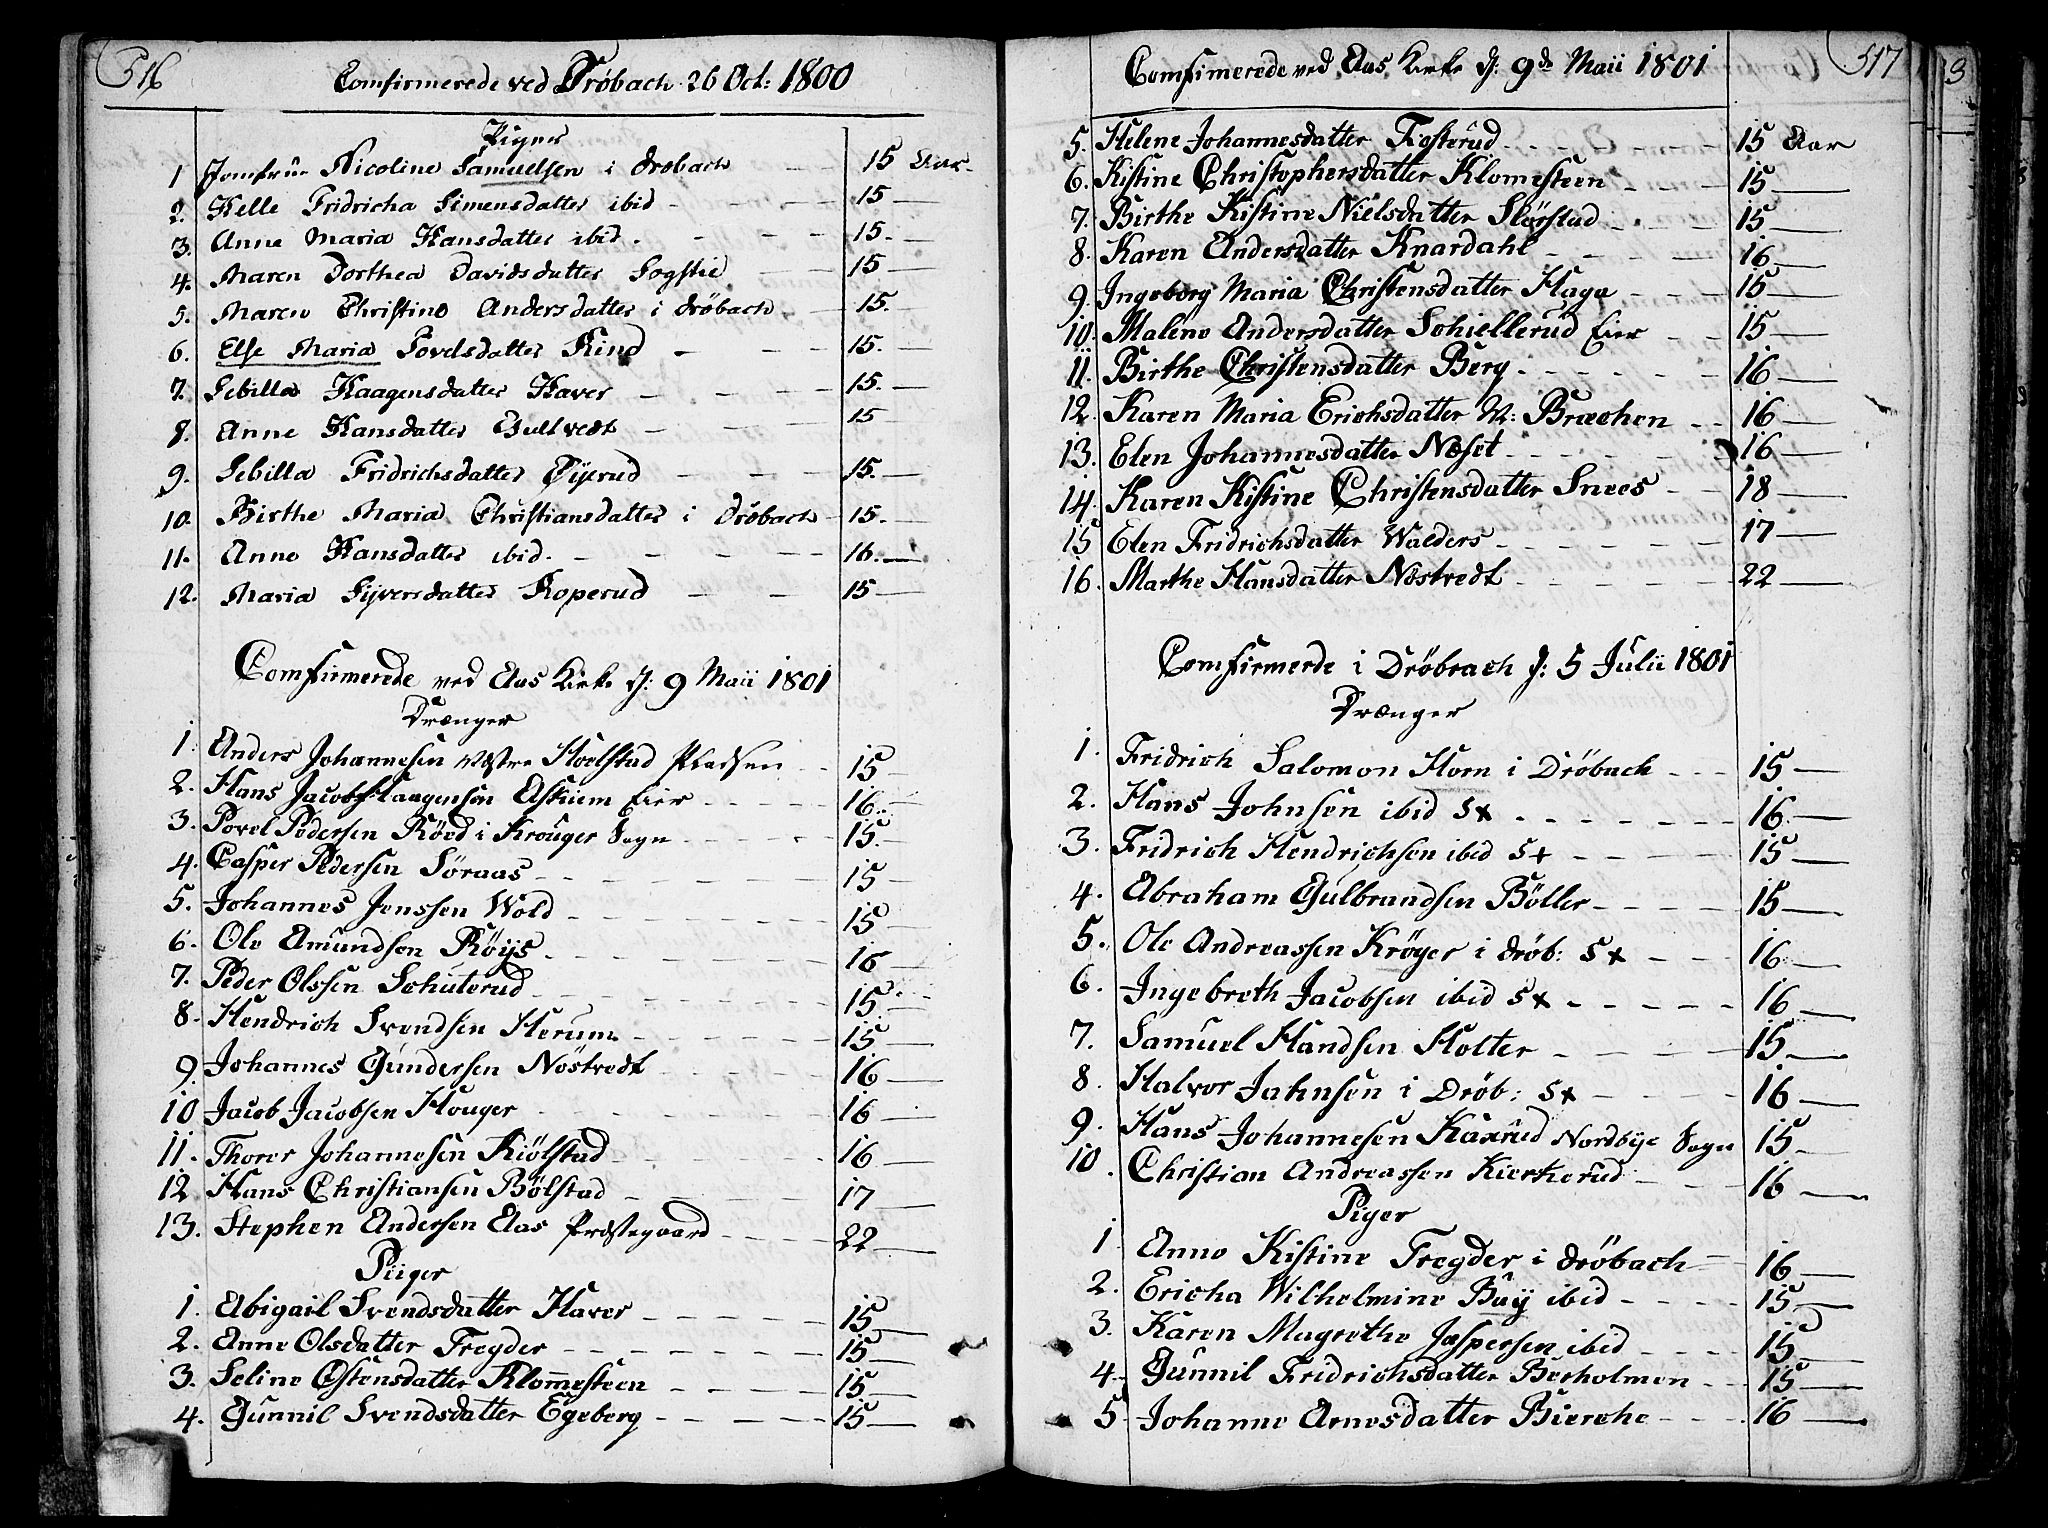 516
Comfirmerede ved Drøbach 26 Oct: 1800
Piger
1 Jomfrue Nicoline Samuelsen i Drøbach 15 Aar
2. Helle Fridricha Simensdatter ibid 15
3. Anne Maria Hansdatter ibid. 15.
4. Maren Dorthea Davidsdatter Sogstie 15
5. Maren Christine Andersdatter i Drøbach 15.
6. Else Maria Povelsdatter Rind 15.
7. Sebilla Haagensdatter Haver 15.
8. Anne Hansdatter Gultvedt 15
9. Sebilla Fridrichsdatter Øijerud 15.
10. Birthe Maria Christiansdatter i Drøbach 15.
11. Anne Hansdatter ibid. 16.
12. Maria Sijversdatter Koperud 15
Comfirmerede ved Aas Kirke d: 9 Maii 1801
Drænger
1. Anders Johannesen Væstre Holstad Pladsen 15
2. Hans Jacob Haagensen Askiem Eier 16.
3. Povel Pedersen Röed i Krouger Sogn 15.
4. Casper Pedersen Söraas 15
5. Johannes Jenssen Wold 15
6. Ole Amundsen Röijs 16
7. Peder Olssen Schuterud 15
8. Hendrich Svendsen Herum 15
9. Johannes Gundersen Nöstvedt 16
10 Jacob Jacobsen Houger 16
11. Thorer Johannesen Kiölstad 16
12 Hans Christiansen Bölstad 17
13. Stephen Andersen Aas Præstegaard 22
Piiger
1. Abigail Svendsdatter Haver 15
2. Anne Olsdatter Tregder 15
3. Seline Østensdatter Klommesteen 15
4. Gunnil Svendsdatter Egeberg 15
517
Comfimerede ved Aas Kirke d: 9de Maii 1801
5. Helene Johannesdatter Fosterud 15 Aar
6. Kistine Christophersdatter Klomesteen 15
7. Birthe Kistine Nielsdatter Slørstad 15
8. Karen Andersdatter Knardahl 16
9. Ingeborg Maria Christensdatter Haga 15
10. Malene Andersdatter Schiellerud Eier 15
11. Birthe Christensdatter Berg 16
12. Karen Maria Erichsdatter N: Bræchen 16
13. Elen Johannesdatter Næset 16
14. Karen Kistine Christensdatter Snees 18
15 Elen Fridrichsdatter Walders 17
16. Marthe Hansdatter Nöstvedt 22
Comfirmerde i Drøbrach d: 5 Julii 1801
Drænger
1. Fridrich Salomon Horn i Drøbach 15
2. Hans Johnsen ibid S+ 16.
3. Fridrich Hendrichsen ibid S+ 15
4. Abraham Gulbrandsen Bøller 15
5. Ole Andreassen Krøger i Drøb: S+ 16
6. Ingebreth Jacobsen ibid S+ 16
7. Samuel Handsen Holter 15
8. Halvor Jahnsen i Drøb: S+ 16
9. Hans Johannesen Kaxrud Nordbye Sogn 15
10. Christian Andreassen Kierkerud 16
Piger
1 Anne Kistine Tregder i Drøbach 16
2. Ericha Wilhelmine Buy ibid 15
3. Karen Magrethe Jespersen ibid 15
4. Gunnil Fridrichsdatter Bierholmen 15
5 Johanne Arnesdatter Bierche 16